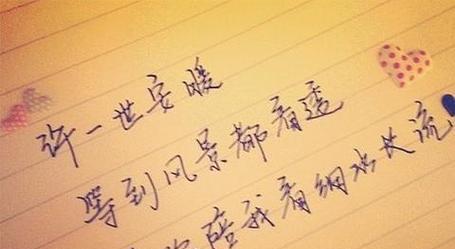 许一世安暖
等到风景都看透
你陪我看细水长流